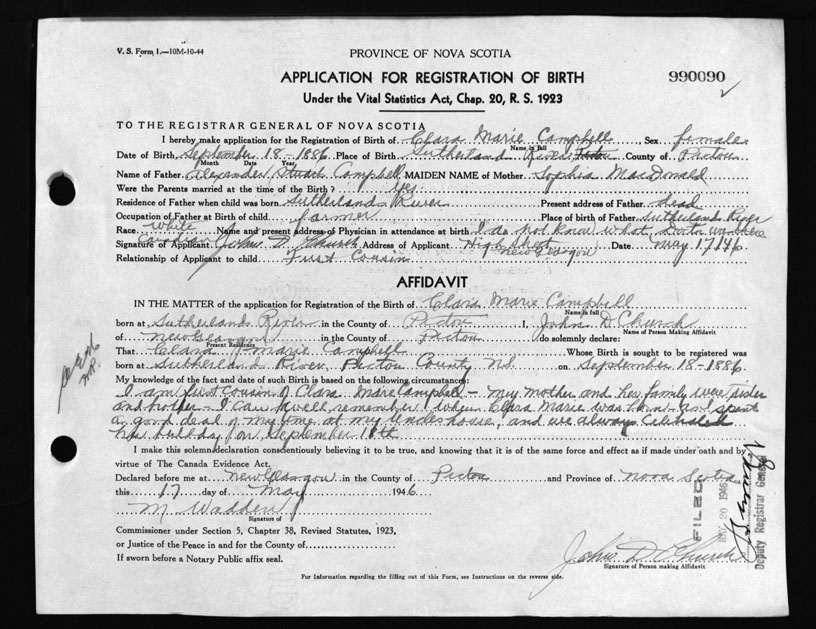 V. S. Form 1.—10M-10-44
PROVINCE OF NOVA SCOTIA
APPLICATION FOR REGISTRATION OF BIRTH
990090
Under the Vital Statistics Act, Chap. 20, R. S. 1923
TO THE REGISTRAR GENERAL OF NOVA SCOTIA
I hereby make application for the Registration of Birth of Clara Marie Campbell, Sex female
Name in full
Date of Birth September 18-1886 Place of Birth Sutherland River County of Pictou
Month Date Year
Name of Father Alexander Stuart Campbell MAIDEN NAME of Mother Sophia MacDonald
Were the Parents married at the time of the Birth? Yes
Residence of Father when child was born Sutherlands River Present address of Father dead
Occupation of Father at Birth of child farmer Place of birth of Father Sutherland River
Race White Name and present address of Physician in attendance at birth I do not know what Doctor was there
Signature of Applicant John D Church Address of Applicant High Street New Glasgow Date May 17/46
Relationship of Applicant to child First Cousin
AFFIDAVIT
IN THE MATTER of the application for Registration of the Birth of Clara Marie Campbell
Name in full
born at Sutherlands River in the County of Pictou I, John D Church
Name of Person Making Affidavit
of New Glasgow in the County of Pictou do solemnly declare:
Present Residence
That Clara Marie Campbell Whose Birth is sought to be registered was
born at Sutherland River, Pictou County N.S. on September 18-1886
My knowledge of the fact and date of such Birth is based on the following circumstances:
I am first cousin of Clara Marie Campbell - My mother and her family were sister
and brother - I can well remember when Clara Marie was born - as I spent
a good deal of my time at my Uncles house, and we always celebrated
her birthday on September 18th
I make this solemn declaration conscientiously believing it to be true, and knowing that it is of the same force and effect as if made under oath and by
virtue of The Canada Evidence Act.
Declared before me at New Glasgow in the County of Pictou and Province of Nova Scotia
this 17 day of May 1946
M. Wadden
Signature of
Commissioner under Section 5, Chapter 38, Revised Statutes, 1923,
or Justice of the Peace in and for the County of
If sworn before a Notary Public affix seal.
John D Church
Signature of Person making Affidavit
For Information regarding the filling out of this Form, see Instructions on the reverse side.
FILED
MAY 20 1946
Deputy Registrar General